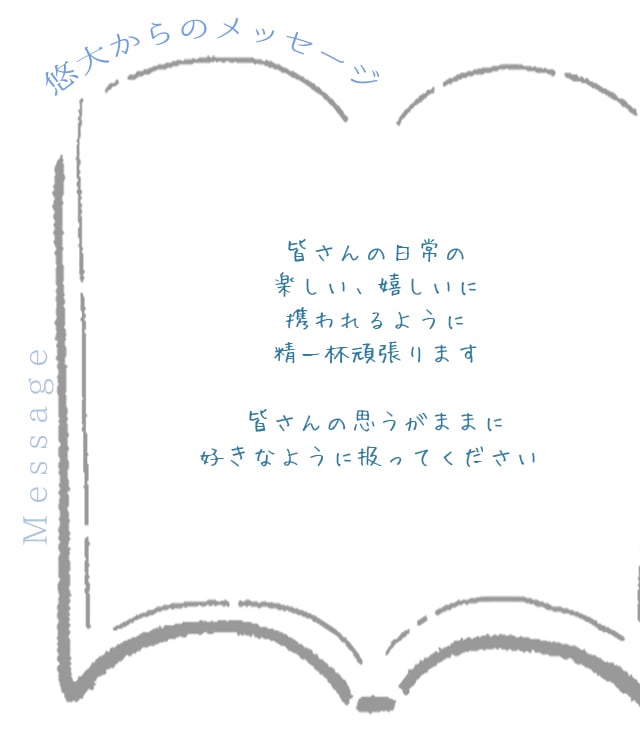 悠大からのメッセージ
Message
皆さんの日常の
楽しい、嬉しいに
携われるように
精一杯頑張ります
皆さんの思うがままに
好きなように扱ってください